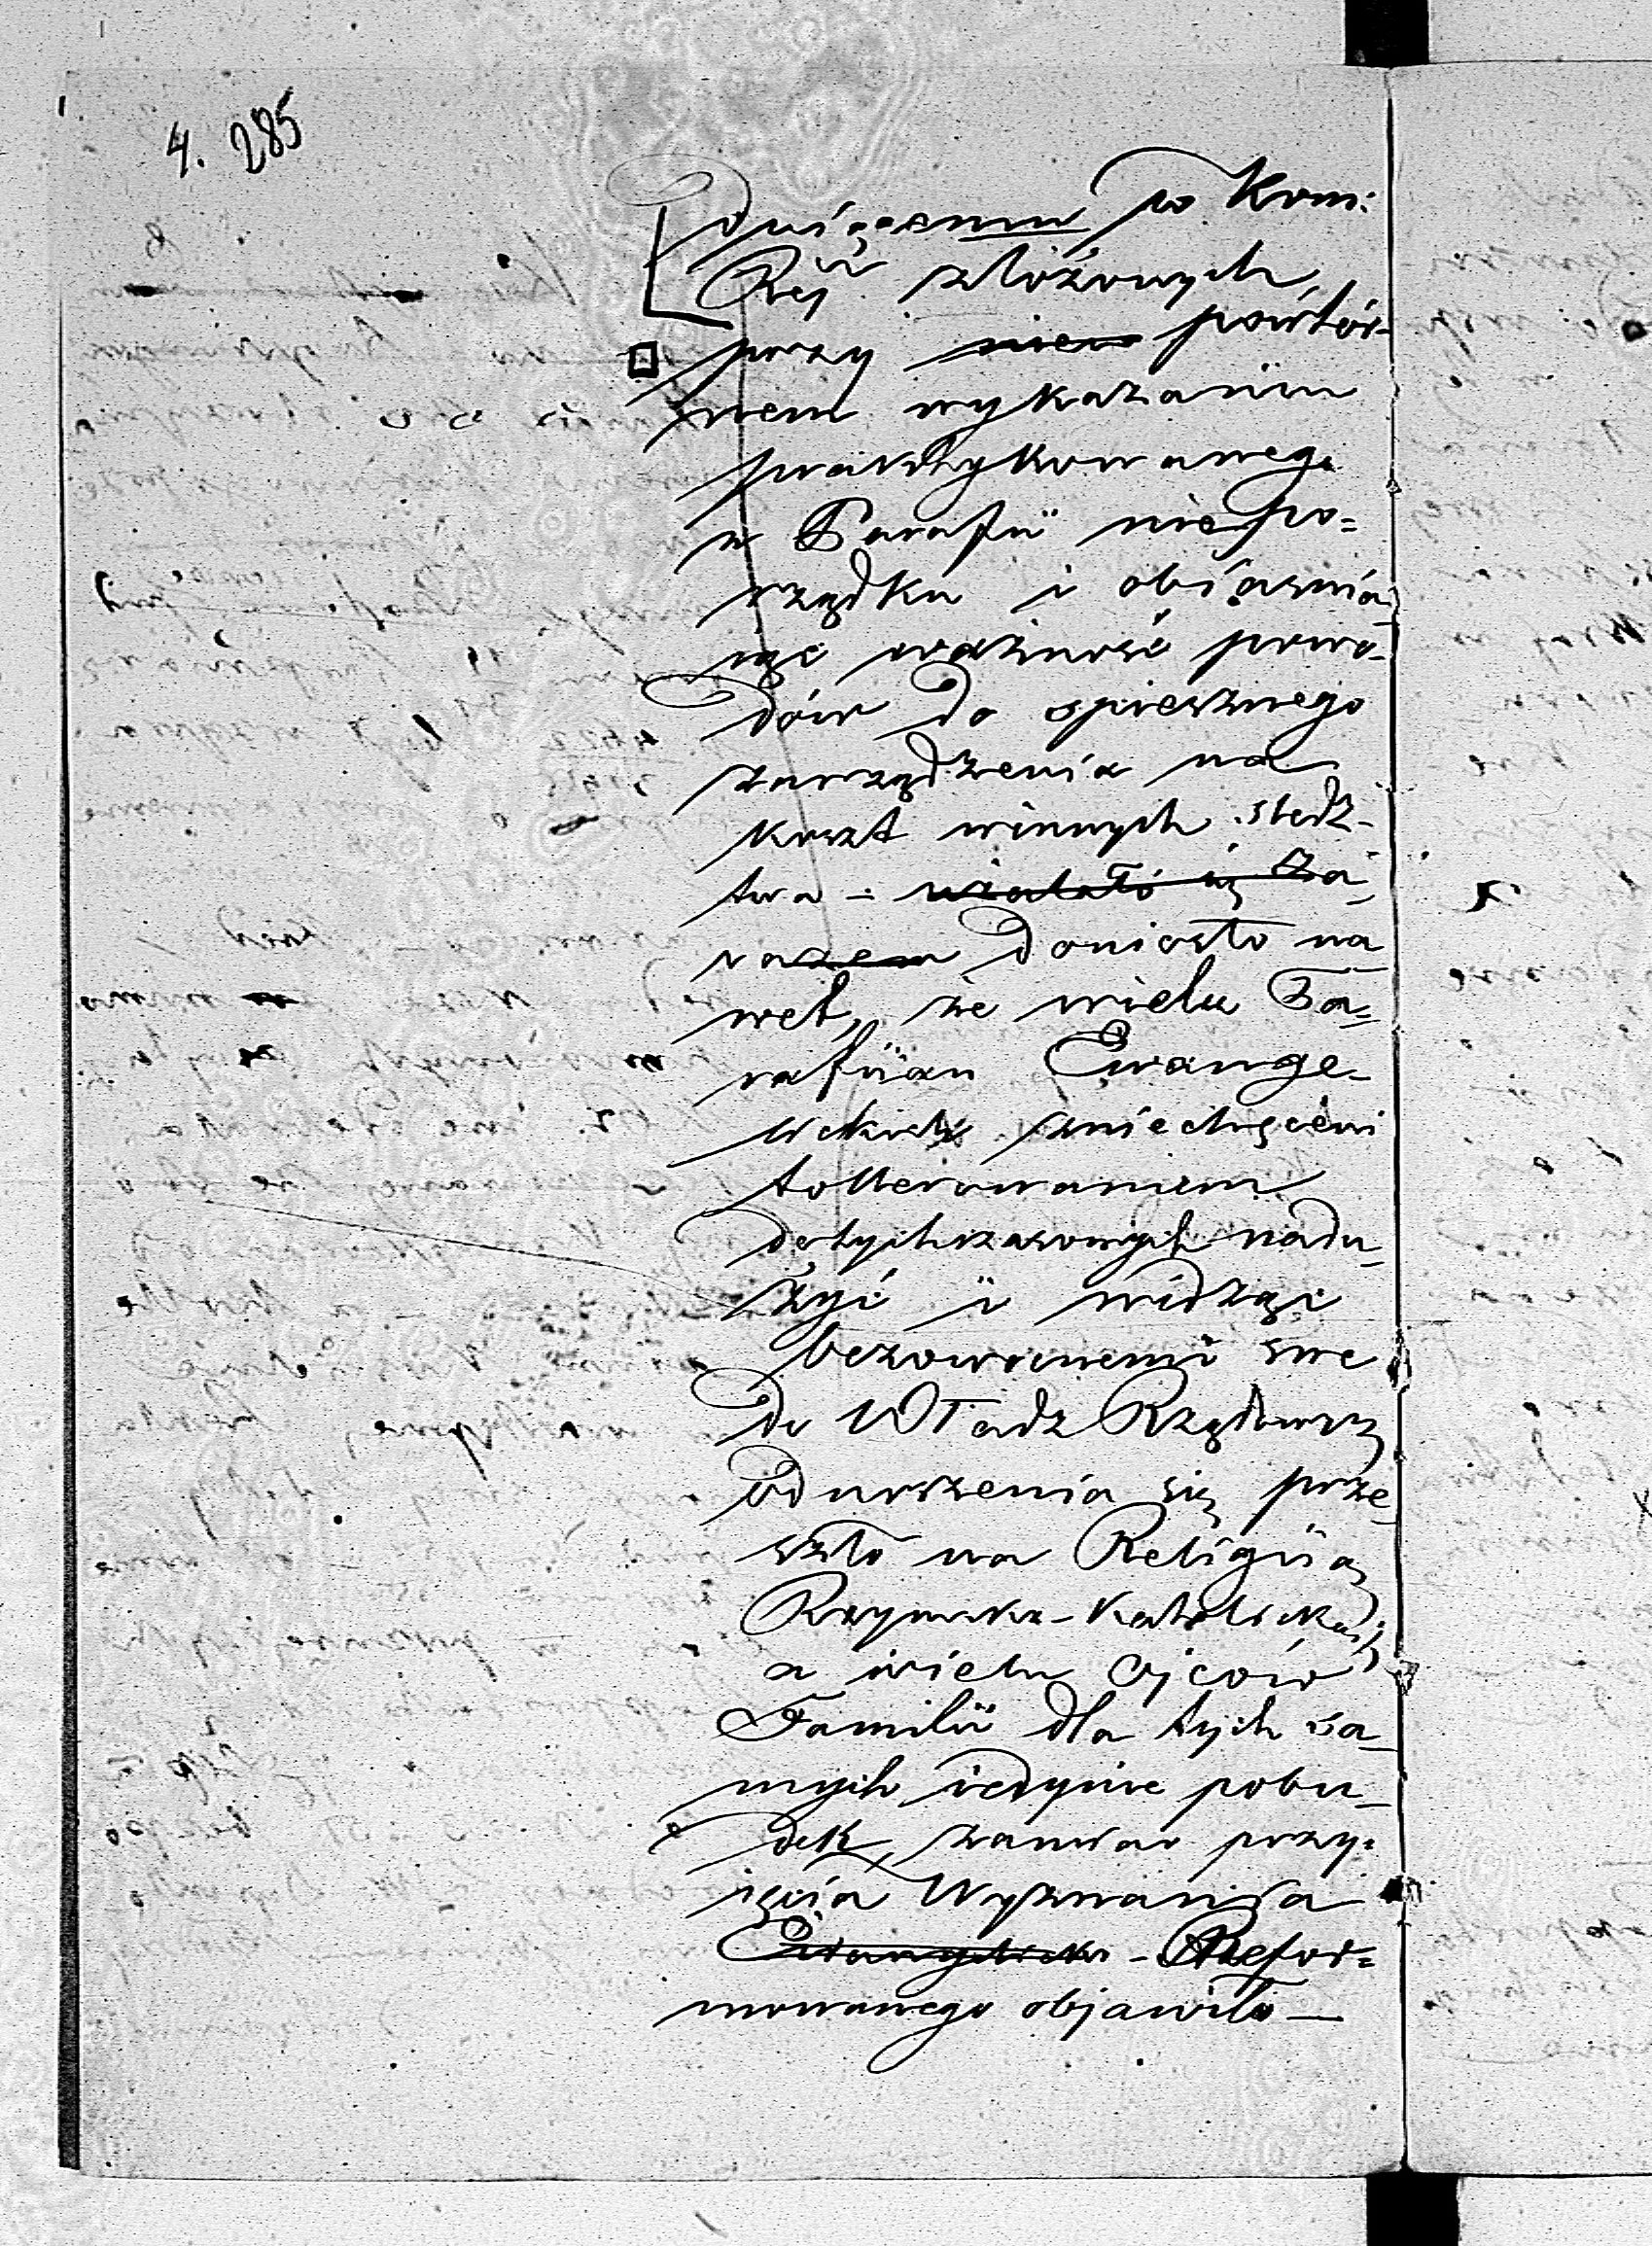 4. 285
po Kom:
Rząd złożonych,
przy powtór-
nem wykazaniu
praktykowanego
w Parafii niepo=
rządku i obiaśnia
iąc ważność powo-
dów do spiesznego
zarządzenia na
koszt winnych śledz-
twa -
doniosło na
wet, że wielu Pa=
rafiian Ewange-
lickich zniechęceni
tollerowaniem
dotychczasowych nadu
żyć i widząc
bezowocnemi swe
do Władz Rządowych
odnoszenia się prze
szło na Religiią
Rzymsko-Katolicką,
a wielu Ojców
Familii dla tych sa_
mych iedynie pobu_
dek, zamiar przy=
ięcia Wyznania
Ewangelicko - Refor=
mowanego objawiło —